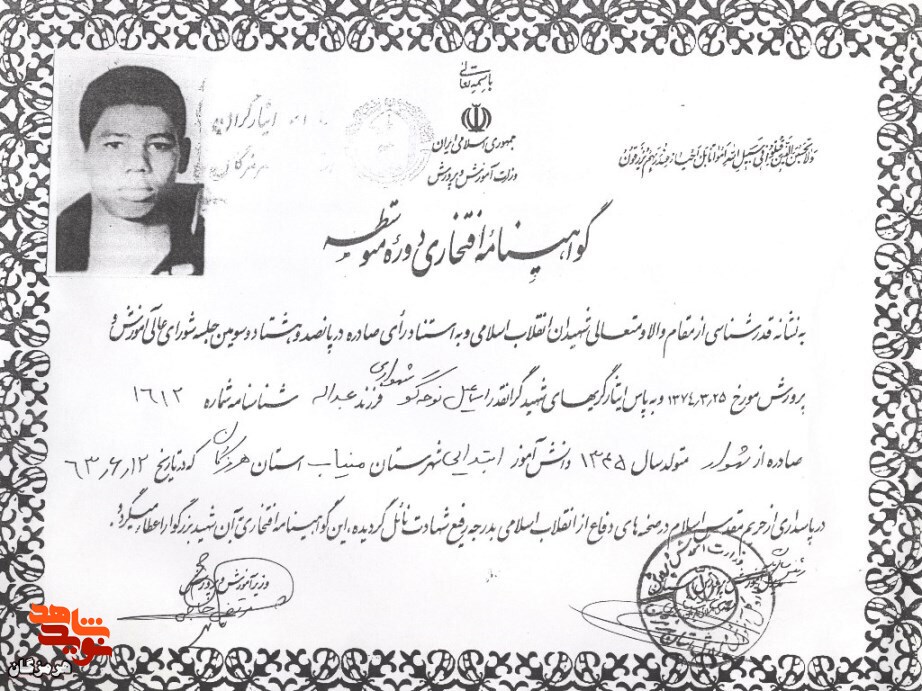 باسمه تعالی
جمهوری اسلامی ایران
وزارت آموزش و پرورش
ولا تحسبن الذین قتلوا فی سبیل الله امواتا بل احیاء عند ربهم یرزقون
ایثارگران
هرمزگان
گواهینامهٔ افتخاری دورهٔ متوسطه
به نشانه قدرشناسی از مقام والا و متعالی شهیدان انقلاب اسلامی و به استناد رأی صادره در پانصد و هشتاد و سومین جلسه شورای عالی آموزش و
پرورش مورخ ۱۳۷۴٫۳٫۲۵ و به پاس ایثارگریهای شهید گرانقدر اسماعیل نوحه گو شهواری فرزند عبداله شناسنامه شماره ۱۶۱۲
صادره از شهوار متولد سال ۱۳۴۵ دانش آموز ابتدایی شهرستان میناب استان هرمزگان که در تاریخ ۶۳٫۶٫۱۲
در پاسداری از حریم مقدس اسلام در صحنه های دفاع از انقلاب اسلامی بدرجه رفیع شهادت نائل گردیده، این گواهینامه افتخاری به آن شهید بزرگوار اعطاء میگردد.
وزیر آموزش و پرورش
وزارت آموزش و پرورش
نوید شاهد
هرمزگان